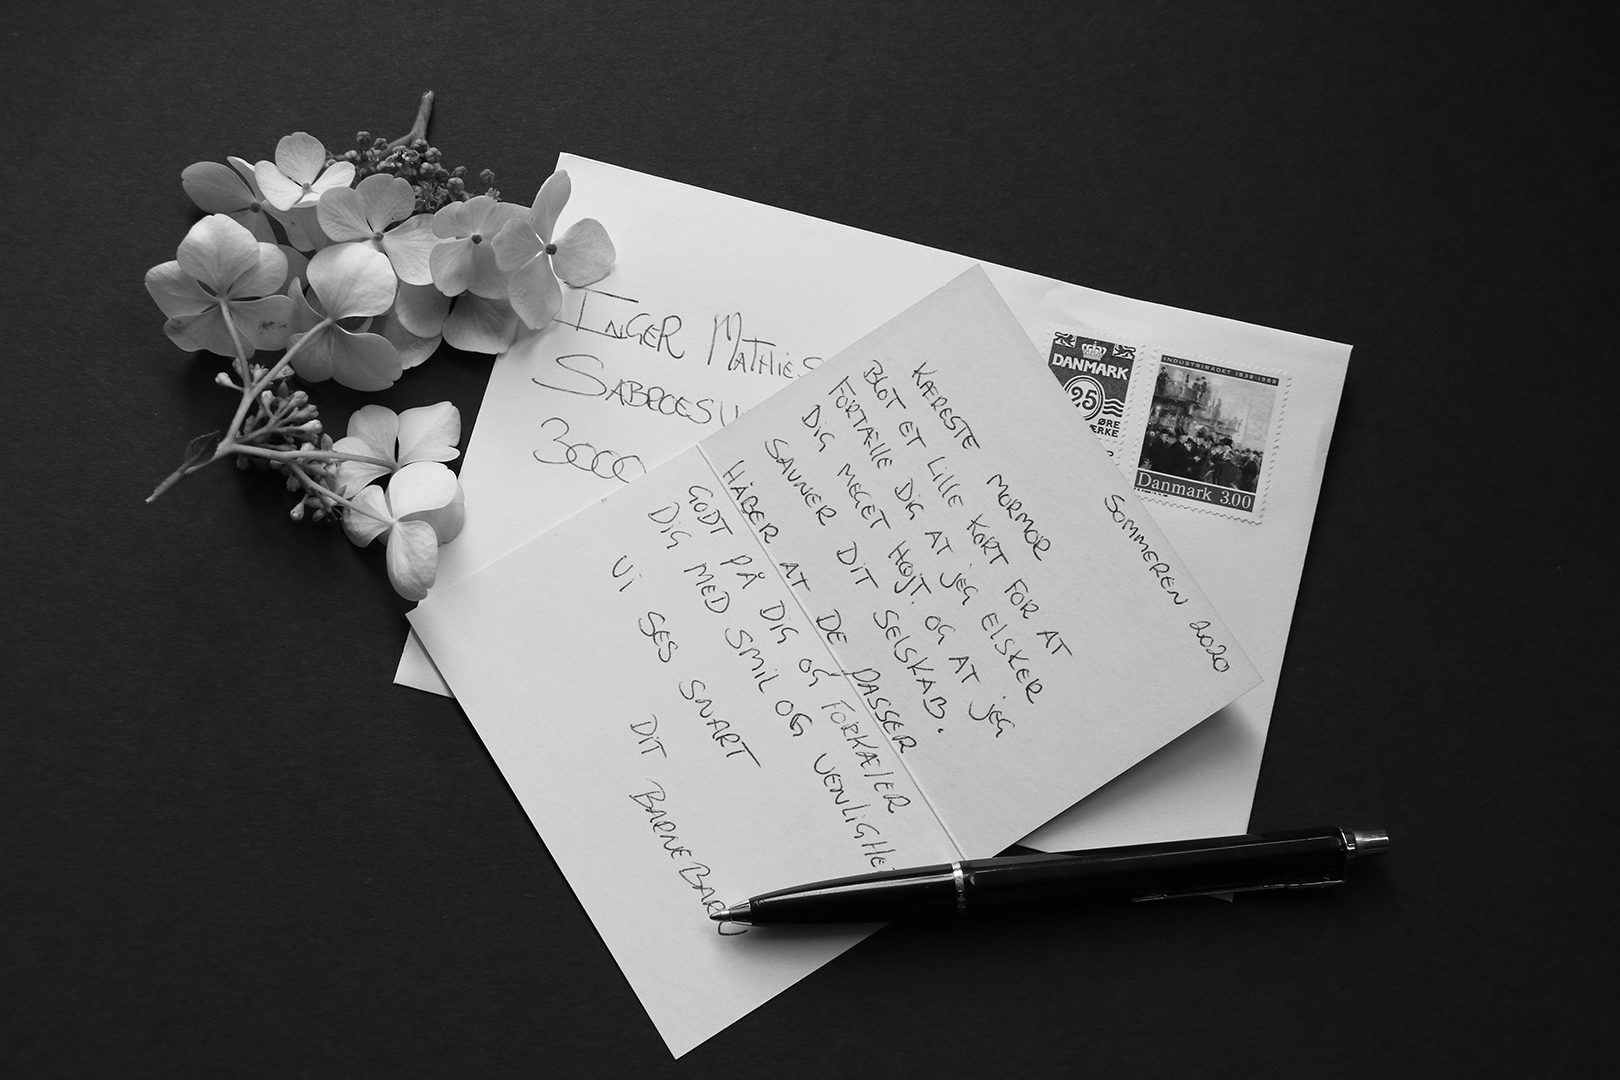 INGER MATHIES
SABROESV
3000
DANMARK
25
ØRE
ÆRKE
INDUSTRIRÅDET 1838-1988
Danmark 3.00
SOMMEREN 2020
KÆRESTE MORMOR
BLOT ET LILLE KORT FOR AT
FORTÆLLE DIG AT JEG ELSKER
DIG MEGET HØJT. OG AT JEG
SAVNER DIT SELSKAB.
HÅBER AT DE PASSER
GODT PÅ DIG OG FORKÆLER
DIG MED SMIL OG VENLIGHE
VI SES SNART
DIT BARNEBARN